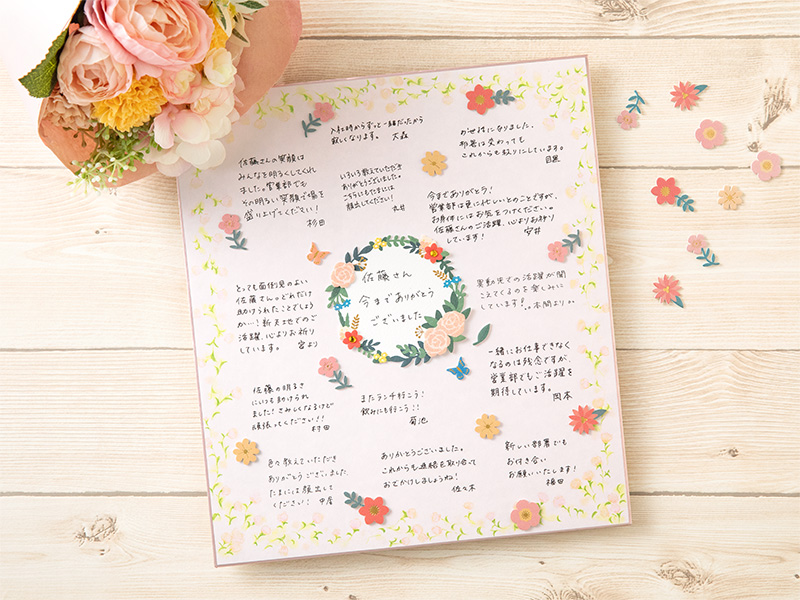 入社時からずっと一緒だったから
寂しくなります。 大森
お世話になりました。
部署は変わっても
これからも頼りにしています。
目黒
佐藤さんの笑顔は
みんなを明るくしてくれ
ました。営業部でも
その明るい笑顔で場を
盛り上げてください!
杉田
いろいろ教えていただき
ありがとうございました。
こちらにもたまには
顔出してください!
今まであ りがとう!
営業部は更に忙しいとのことですが、
お身体にはお気をつけください。
佐藤さんのご活躍、心よりお祈り
しています! 安井
佐藤さん
今までありがとう
ございました
とっても面倒見のよい
佐藤さん。どれだけ
助けられたことでしょう
か…!新天地でのご
活躍、心よりお祈り
しています。 宮より
異動先での活躍が聞
こえてくるのを楽しみに
しています! 本間より
一緒にお仕事できなく
なるのは残念ですが、
営業部でもご活躍を
期待しています。
岡本
佐藤の明るさ
にいつも助けられ
ました!さみしくなるけど
頑張ってください!!
村田
またランチ行こう!
飲みにも行こう!!
菊池
色々教えていただき
ありがとうございました
たまには顔出して
ください! 中居
ありがとうございました。
これからも連絡を取り合って
おでかけしましょうね!
佐々木
新しい部署でも
お付き合い
お願いいたします!